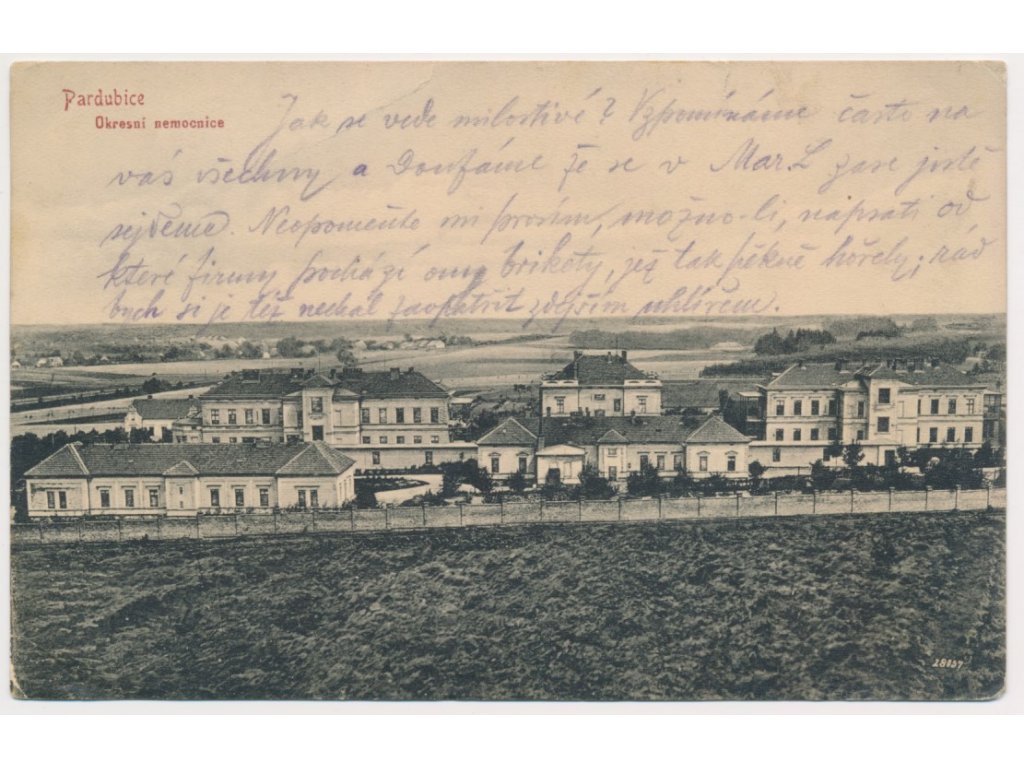 Pardubice
Okresní nemocnice
Jak se vede milostivé? Vzpomínáme často na
vás všechny a Doufáme že se v Mar. L zase jistě
sejdeme. Neopomeňte mi prosím, možno-li, napsati od
které firmy pochází ony brikety, jež tak pěkně hořely; rád
bych si je též nechal zaopatřit zdejším uhlířem.
28057